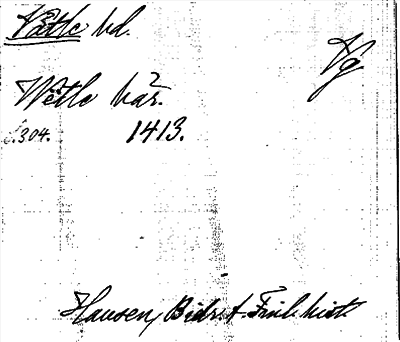 Vättle hd.
Vg
Wetle här.
s.304. 1413.
Hausen, Bidr. t. Finl. hist.